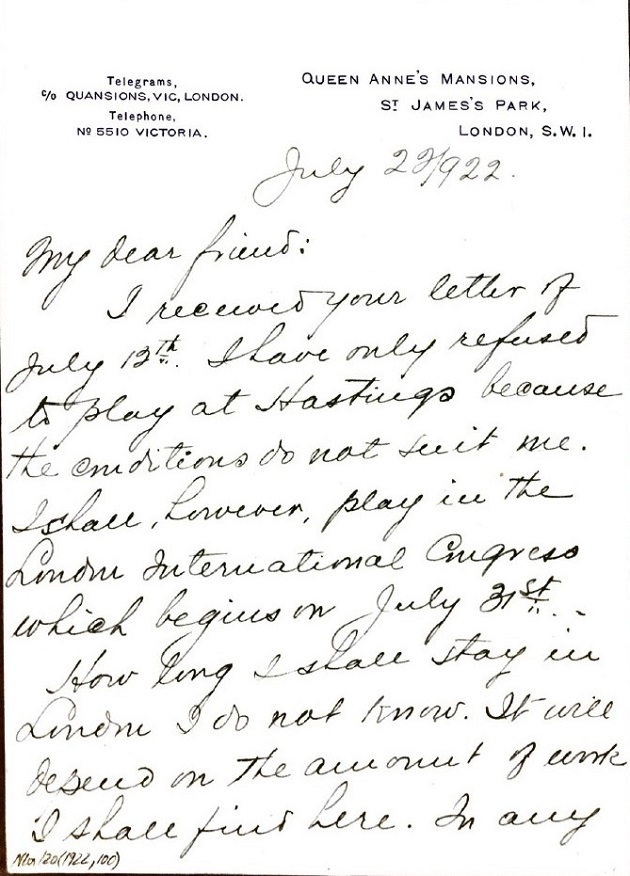 Telegrams,
c/o QUANSIONS, VIC, LONDON.
Telephone,
No 5510 VICTORIA.
QUEEN ANNE'S MANSIONS,
ST JAMES'S PARK,
LONDON, S.W.1.
July 23/922.
My dear friend:
I received your letter of
July 12th. I have only refused
to play at Hastings because
the conditions do not suit me.
I shall, however, play in the
London International Congress
which begins on July 31st.-
How long I shall stay in
London I do not know. It will
depend on the amount of work
I shall find here. In any
(1922,100)